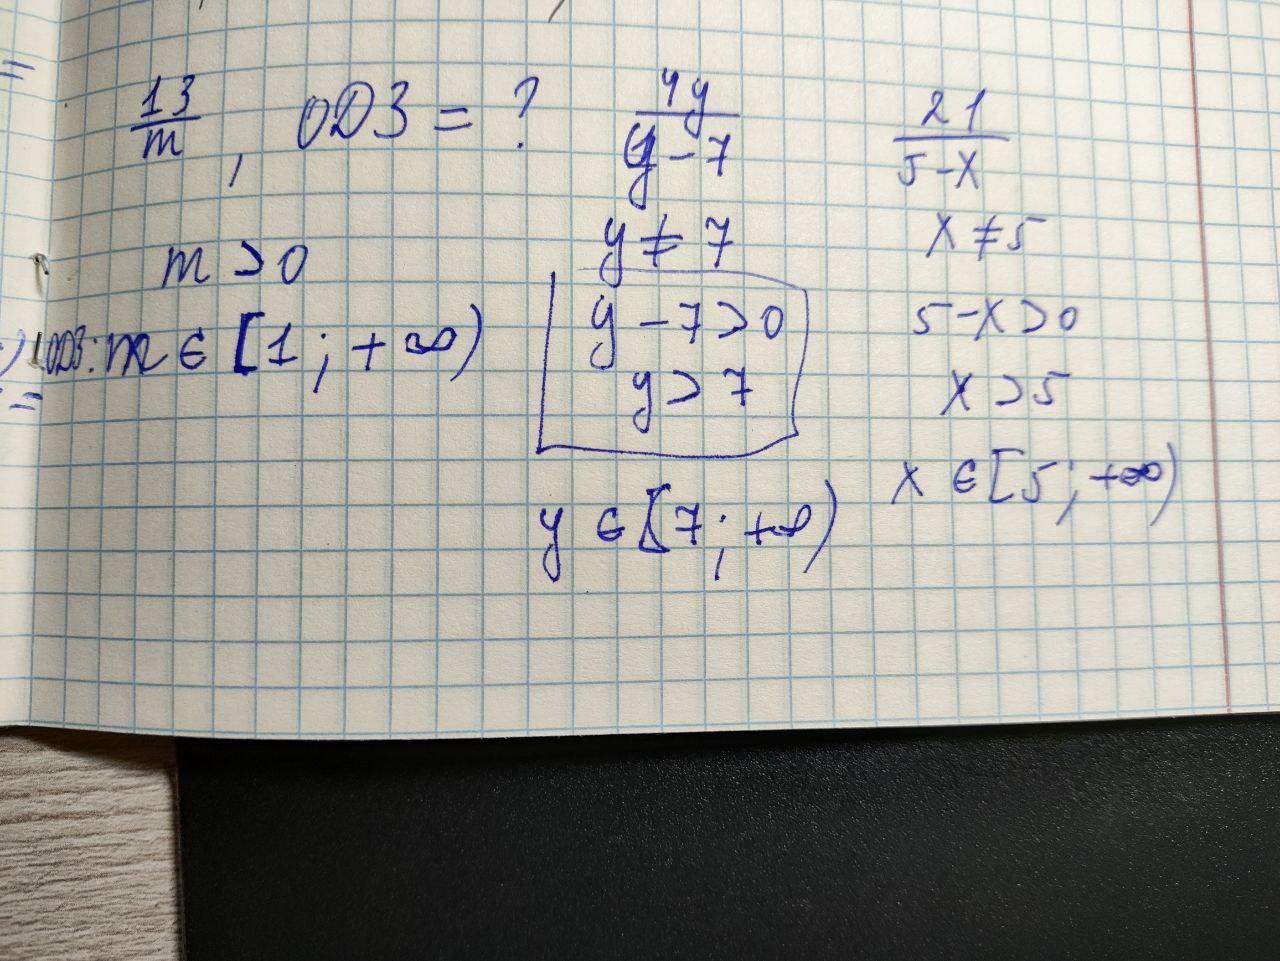 13/m, ОДЗ = ?
m > 0
ОДЗ: m ∈ [1; +∞)
4y/(y - 7)
y ≠ 7
y - 7 > 0
y > 7
y ∈ [7; +∞)
21/(5 - x)
x ≠ 5
5 - x > 0
x > 5
x ∈ [5; +∞)